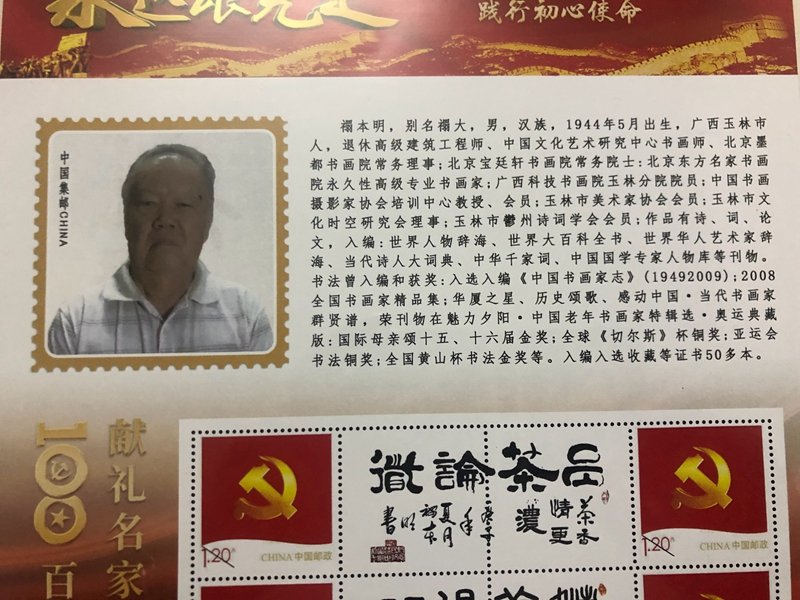 永远跟党走
践行初心使命
中国集邮CHINA
禤本明，别名禤大，男，汉族，1944年5月出生，广西玉林市
人，退休高级建筑工程师、中国文化艺术研究中心书画师、北京墨
都书画院常务理事；北京宝廷轩书画院常务院士：北京东方名家书画
院永久性高级专业书画家；广西科技书画院玉林分院院员；中国书画
摄影家协会培训中心教授、会员；玉林市美术家协会会员；玉林市文
化时空研究会理事；玉林市鬱州诗词学会会员；作品有诗、词、论
文，入编：世界人物辞海、世界大百科全书、世界华人艺术家辞
海、当代诗人大词典、中华千家词、中国国学专家人物库等刊物。
书法曾入编和获奖：入选入编《中国书画家志》(19492009)；2008
全国书画家精品集；华厦之星、历史颂歌、感动中国·当代书画家
群贤谱，荣刊物在魅力夕阳·中国老年书画家特辑选·奥运典藏
版：国际母亲颂十五、十六届金奖；全球《切尔斯》杯铜奖；亚运会
书法铜奖；全国黄山杯书法金奖等。入编入选收藏等证书50多本。
献礼名家
100百
品茶論道
茶香
情更
濃
庚子
年
夏月
禤本
明
書
1.20元
CHINA中国邮政
1.20元
CHINA中国邮政